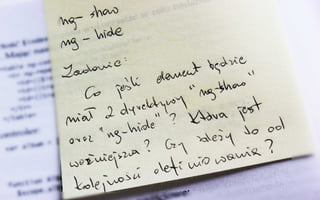 ng-show
ng-hide
Zadanie:
Co jeśli element będzie
miał 2 dyrektywy "ng-show"
oraz "ng-hide"? Która jest
ważniejsza? Czy zależy to od
kolejności definiowania?